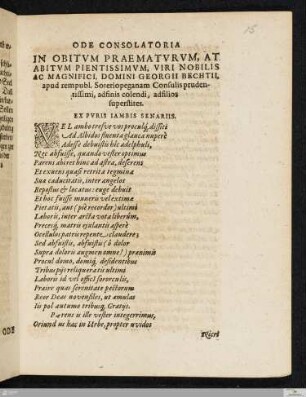 ODE CONSOLATORIA
IN OBITVM PRAEMATVRVM, AT
ABITVM PIENTISSIMVM, VIRI NOBILIS
AC MAGNIFICI, DOMINI GEORGII BECHTII,
apud rempubl. Soteriopeganam Consulis pruden-
tissimi, adfinis colendi, adfilios
superstites.
EX PVRIS IAMBIS SENARIIS.
vos procul,
Ad fluenta glauca nuperè
Adesse debuistis hîc adelphuli,
Nec abfuisse, quando vester optimus
Parens abiret hinc ad astra, deserens
Et exuens quasi retrita tegmina
Sua caducitatis, inter angelos
Repostus & locatus: euge debuit
Et hoc fuisse muneris vel extimæ
Pietatis, ant (pie recordor) ultimi
Laboris, inter vota liberûm,
Precesq́, matris ejulantis asperè
Ocellulos patris repente
Sed abfuistis, abfuistis (ô dolor
Supra doloris augmen omne!) præanimis
Procul domo, domiq́, desidentibus
Tribus reliqueratis ultimi
Laboris id vel officI sororculis,
Præire quas serenitate pectorum
Reor Deas novensiles, ut amulas
Iis pol autumo tribusq́, Gratijs.
Parens is ille vester integerrimus,
Oriund' in hac in Urbe, propter uvidos